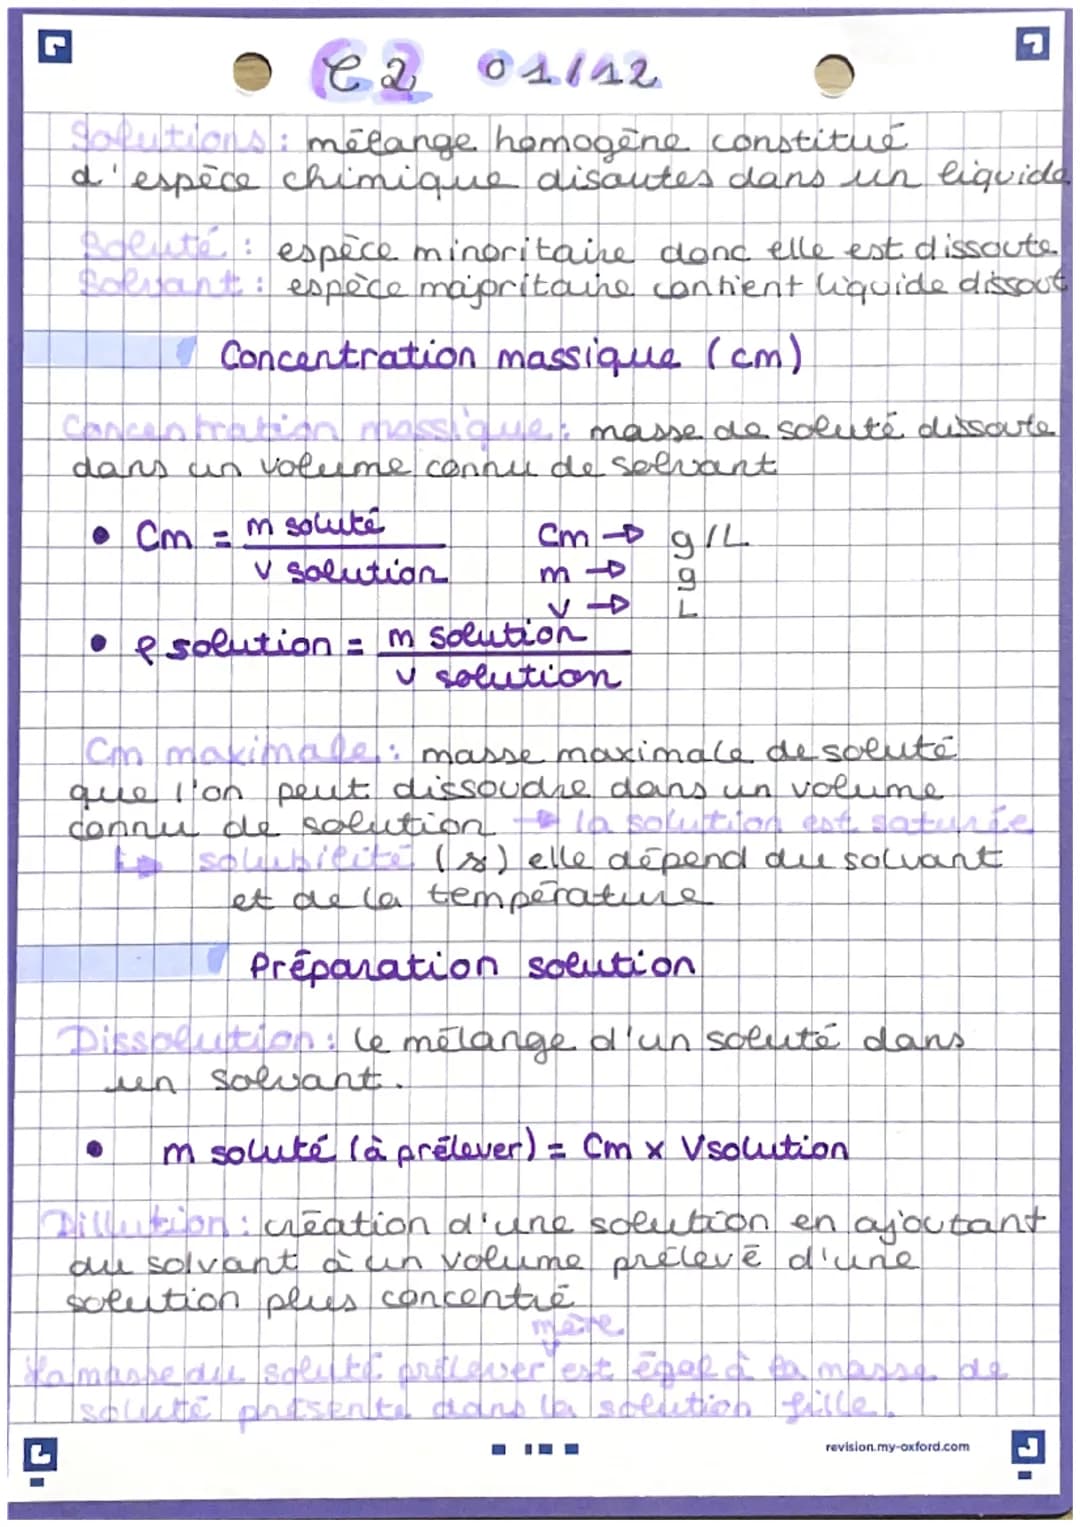 C2 01/12
Solutions : mélange homogène constitué
d'espèce chimique disoutes dans un liquide
Soluté : espèce minoritaire donc elle est dissoute
Solvant : espèce majoritaire contient liquide dissout
Concentration massique (cm)
Concentration massique : masse de soluté dissoute
dans un volume connu de solvant
• Cm = m soluté / v solution
Cm → g/L
m → g
v → L
• ρ solution = m solution / v solution
Cm maximale : masse maximale de soluté
que l'on peut dissoudre dans un volume
connu de solution → la solution est saturée
↳ solubilité (s) elle dépend du solvant
et de la température
Préparation solution
Dissolution : le mélange d'un soluté dans
un solvant.
• m soluté (à prélever) = Cm x Vsolution
Dillution : création d'une solution en ajoutant
du solvant à un volume prélevé d'une
solution plus concentré
mère
La masse du soluté prélever est égal à la masse de
soluté présente dans la solution fille.
revision.my-oxford.com